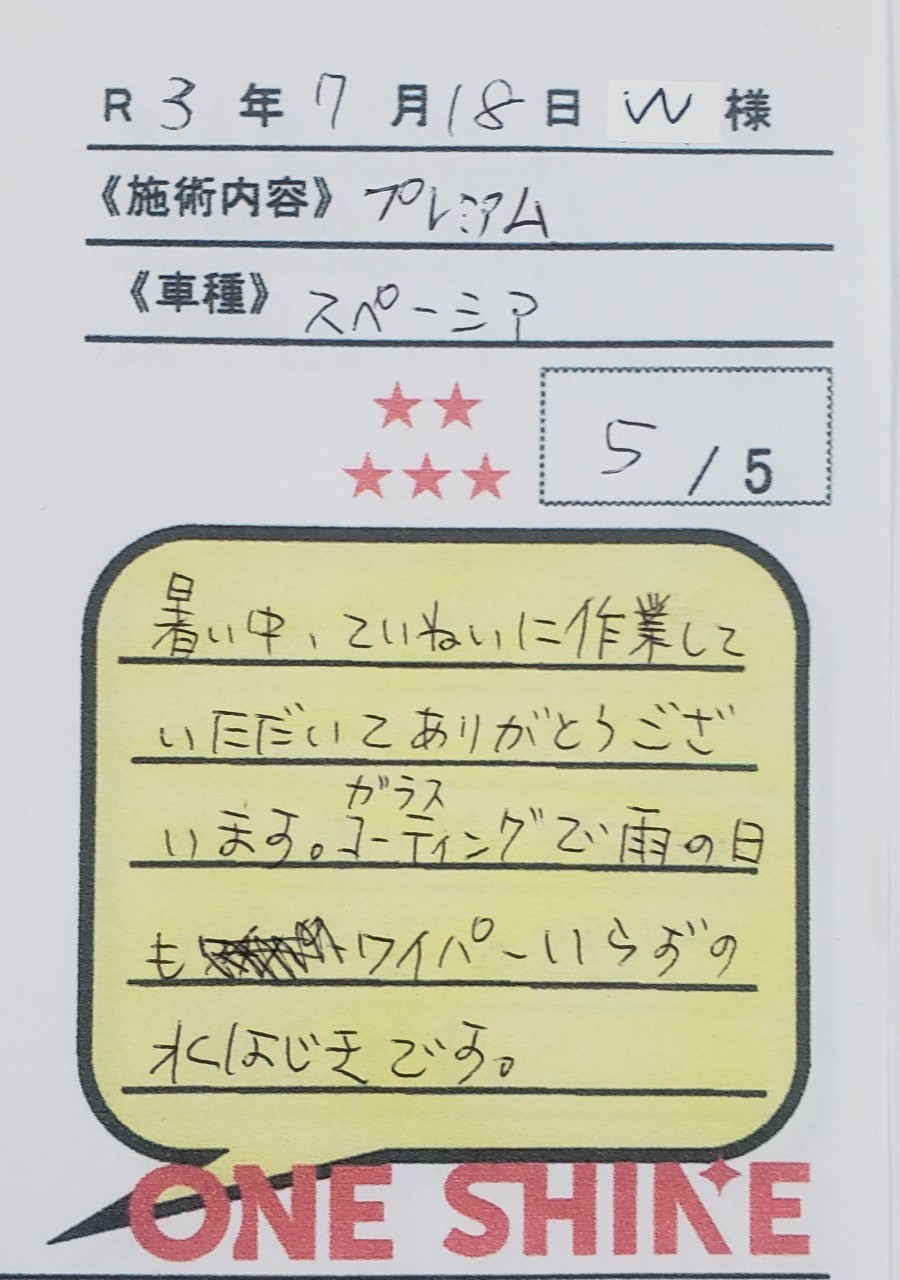 R 3 年 7 月 18 日 W 様
《施術内容》 プレミアム
《車種》 スペーシア
5 / 5
暑い中、ていねいに作業して
いただいてありがとうござ
います。ガラスコーティングで雨の日
も ワイパーいらずの
水はじきです。
ONE SHINE